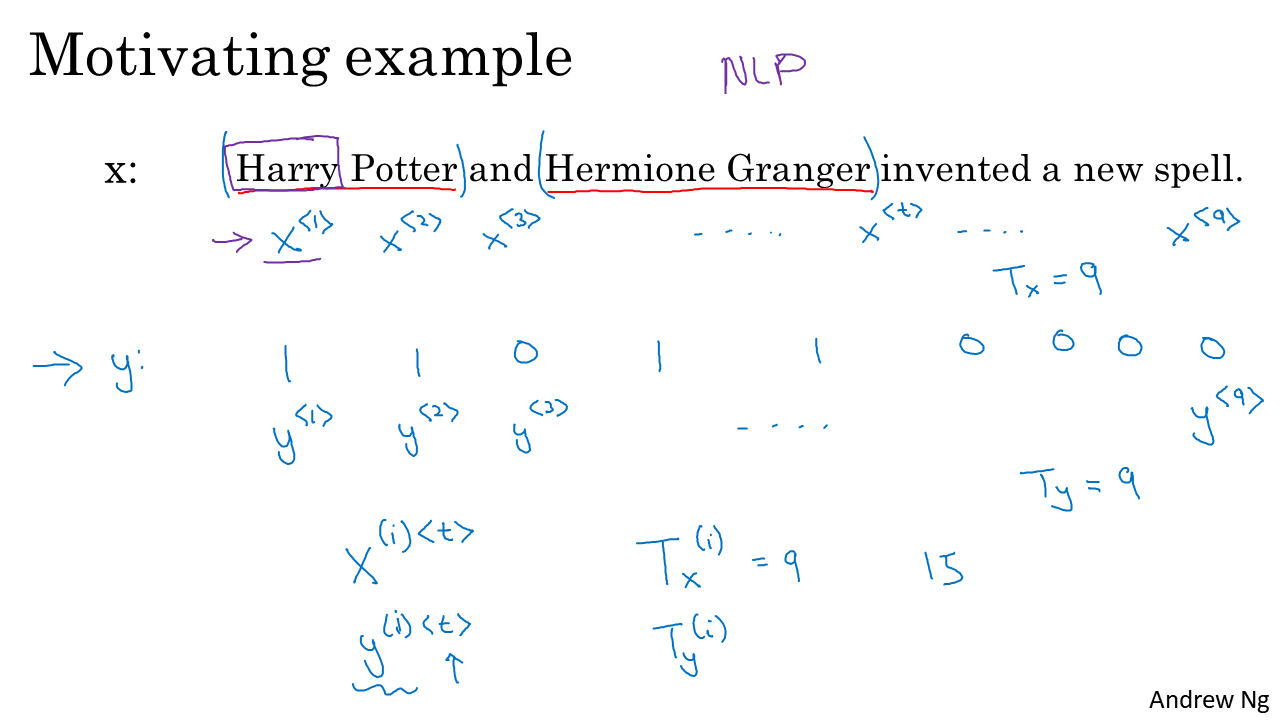 Motivating example NLP
x: (Harry Potter) and (Hermione Granger) invented a new spell.
→ x<1> x<2> x<3> ..... x<t> .... x<9>
Tx = 9
→ y: 1 1 0 1 1 0 0 0 0
y<1> y<2> y<3> .... y<9>
Ty = 9
X(i)<t> Tx(i) = 9 15
y(i)<t> Ty(i)
↑
Andrew Ng